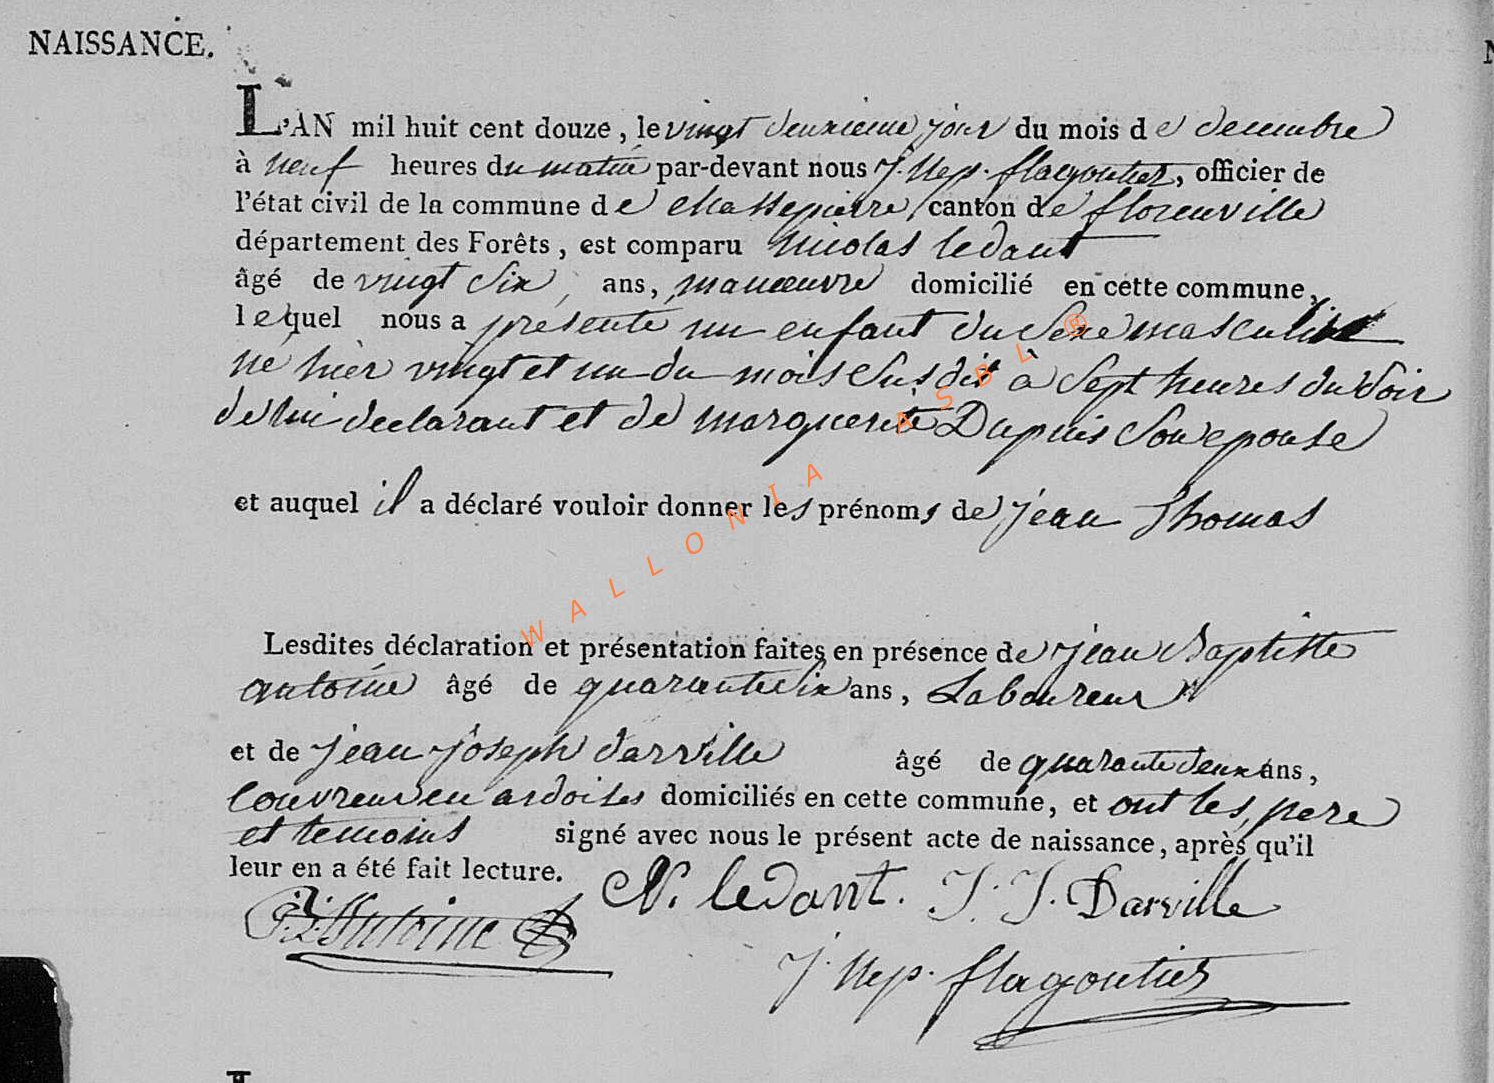 NAISSANCE.
L'AN mil huit cent douze, le vingt deuxieme jour du mois de decembre
à neuf heures du matin par-devant nous J. Nep. flagoutier, officier de
l'état civil de la commune de Chassepierre, canton de florenville
département des Forêts, est comparu nicolas ledant
âgé de vingt six, ans, manœuvre domicilié en cette commune,
lequel nous a présenté un enfant du Sexe masculin
né hièr vingt et un du mois Sus dit à Sept heures du Soir
de lui declarant et de marguerite Dupuis Son epouse
et auquel il a déclaré vouloir donner les prénoms de jean Thomas
Lesdites déclaration et présentation faites en présence de jean Baptiste
antoine âgé de quarante Six ans, Laboureur
et de jean joseph darville âgé de quarante deux ans,
Couvreur en ardoises domiciliés en cette commune, et ont les pere
et temoins signé avec nous le présent acte de naissance, après qu'il
leur en a été fait lecture.
N. ledant. J. J. Darville
J. B. Antoine
J. Nep. flagoutier
WALLONIA ASBL ®